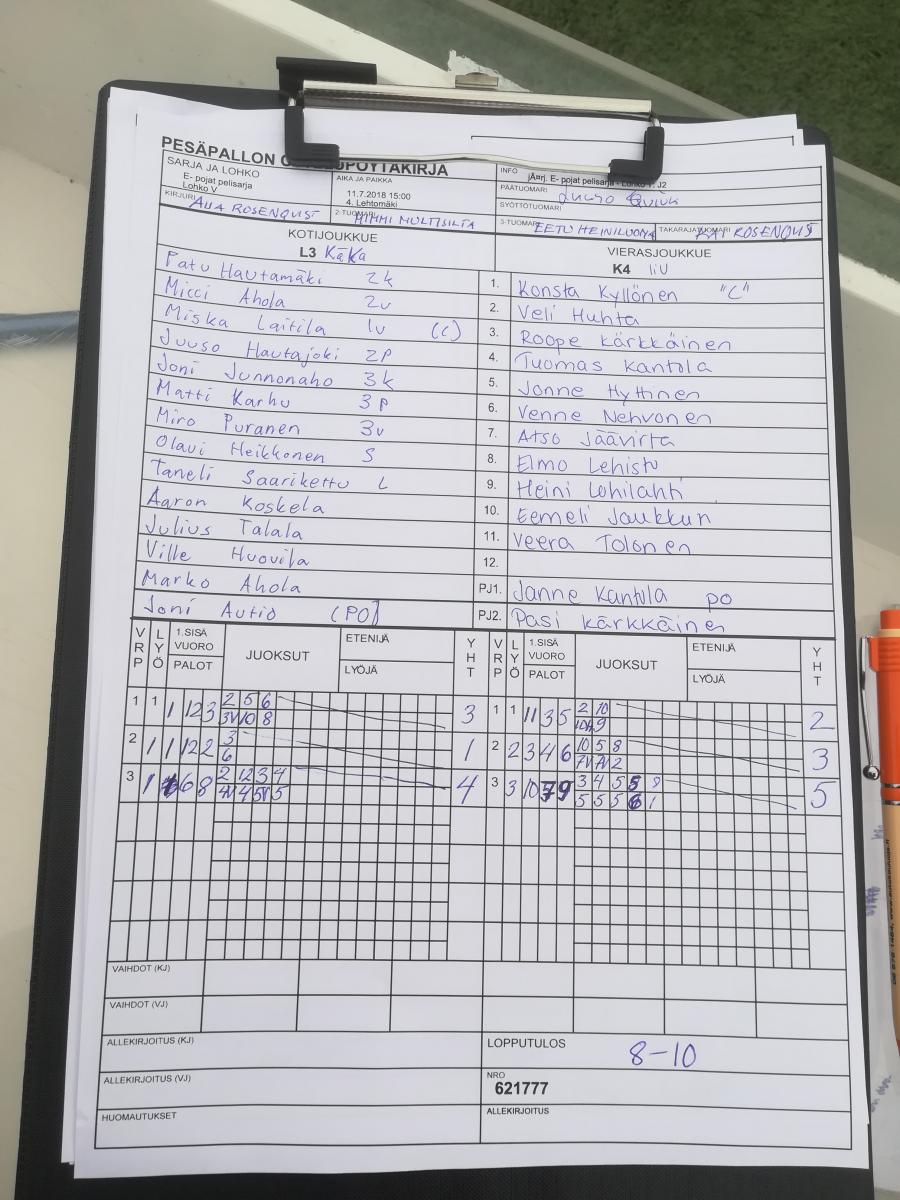 PESÄPALLON
PÖYTÄKIRJA
SARJA JA LOHKO
E- pojat pelisarja
Lohko V
AIKA JA PAIKKA
11.7.2018 15:00
4. Lehtomäki
INFO
jÄrrj. E- pojat pelisarja - Lohko
J2
PÄÄTUOMARI
SYÖTTÖTUOMARI
KIRJURI
AIIA ROSENQVIST
2-TUOMARI
MIMMI MULTISILTA
3-TUOMARI
EETU HEINILUOMA
TAKARAJATUOMARI
KAI ROSENQVIST
KOTIJOUKKUE
L3 KäKa
VIERASJOUKKUE
K4 liU
Patu Hautamäki 2k
1. Konsta Kyllönen "C"
Micci Ahola 2v
2. Veli Huhta
Miska Laitila 1v (C)
3. Roope Kärkkäinen
Juuso Hautajoki 2P
4. Tuomas Kantola
Joni Junnonaho 3k
5. Jonne Hyttinen
Matti Karhu 3P
6. Venne Nehvonen
Miro Puranen 3v
7. Atso Jäävirta
Olavi Heikkonen S
8. Elmo Lehisto
Taneli Saarikettu L
9. Heini Lohilahti
Aaron Koskela
10. Eemeli Jaukkuri
Julius Talala
11. Veera Tolonen
Ville Huovila
12.
Marko Ahola
PJ1. Janne Kantola PO
Joni Autio (PO)
PJ2. Pasi Kärkkäinen
VRP LYÖ 1.SISÄ VUORO PALOT JUOKSUT ETENIJÄ LYÖJÄ YHT
VRP LYÖ 1.SISÄ VUORO PALOT JUOKSUT ETENIJÄ LYÖJÄ YHT
1 1 1 12 3 2 5 6 3
3V 10 8
1 1 11 3 5 2 10 2
9
2 1 1 12 2 3 1
6
2 2 3 4 6 10 5 8 3
7V 7V 2
3 1 6 8 2 12 3 4 4
4V 4 5V 5
3 3 10 7 9 3 4 5 5 9 5
5 5 5 6 1
VAIHDOT (KJ)
VAIHDOT (VJ)
ALLEKIRJOITUS (KJ)
LOPPUTULOS
8-10
ALLEKIRJOITUS (VJ)
NRO
621777
HUOMAUTUKSET
ALLEKIRJOITUS